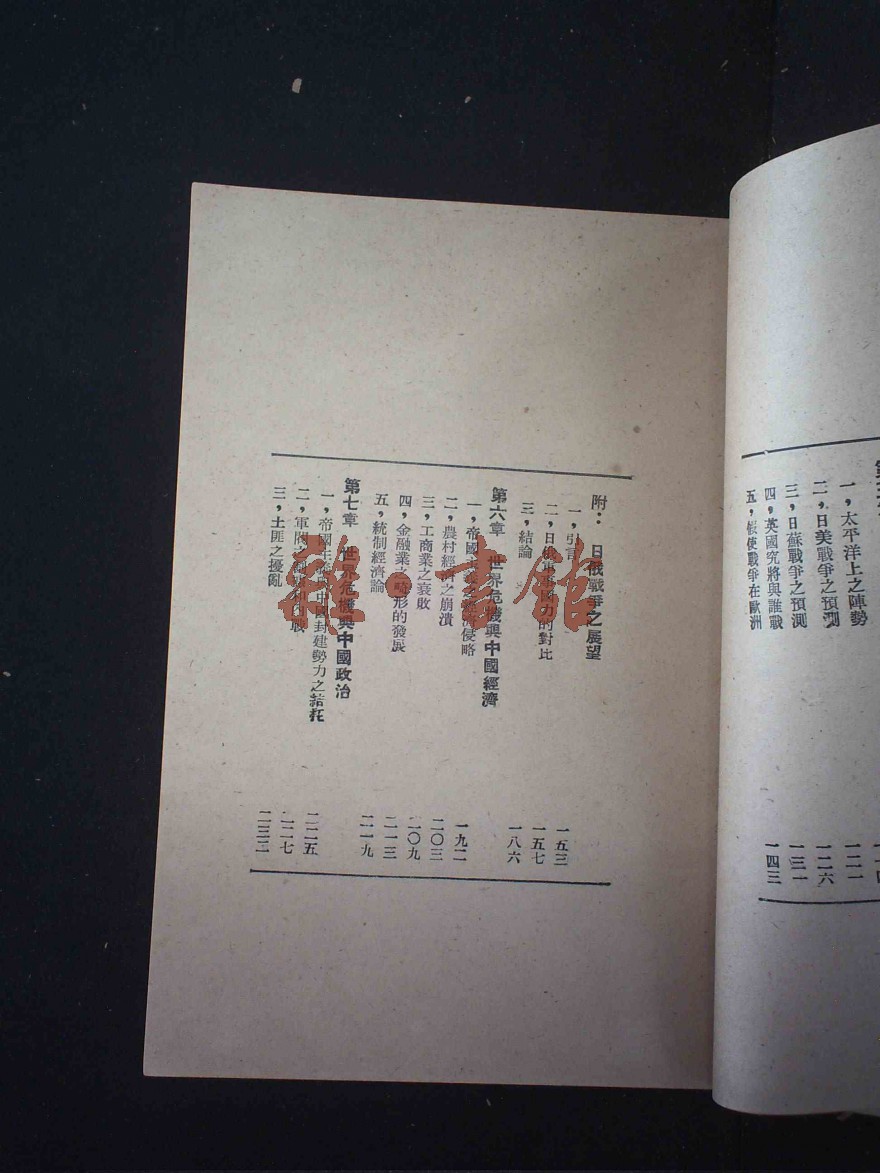 一，太平洋上之陣勢
二，日美戰爭之預測 一二一
三，日蘇戰爭之預測 一二六
四，英國究將與誰戰 一三一
五，假使戰爭在歐洲 一四三
附： 日俄戰爭之展望
一，引言 一五三
二，日俄國力的對比 一五七
三，結論 一八六
第六章 世界危機與中國經濟
一，帝國主義之經濟侵略 一九二
二，農村經濟之崩潰 二〇三
三，工商業之衰敗 二〇九
四，金融業之畸形的發展 二一三
五，統制經濟論 二一九
第七章 世界危機與中國政治
一，帝國主義與中國封建勢力之結托 二二五
二，軍閥之割據和內戰 二二七
三，土匪之擾亂 二三二
雜·書館